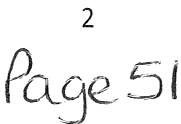 2
Page 51